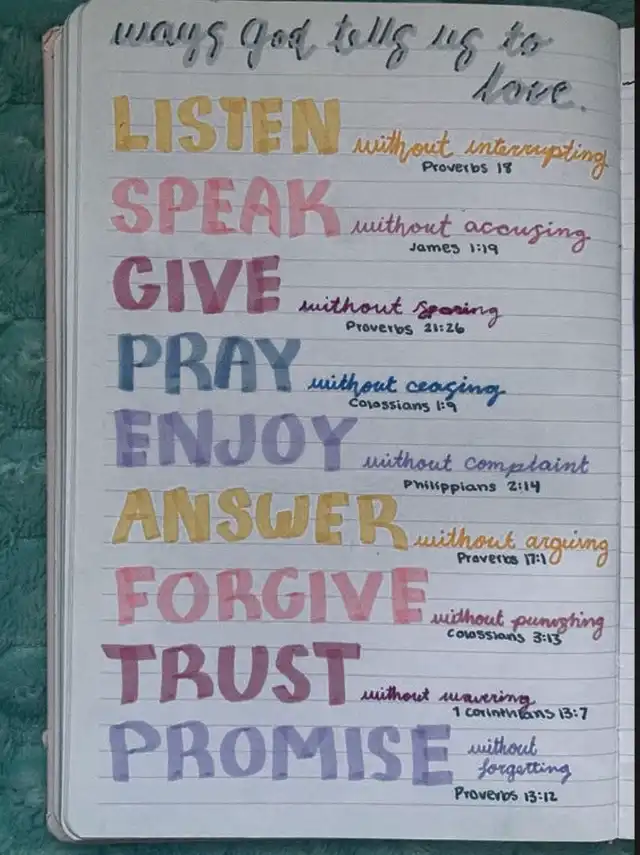 ways god tells us to
love.
LISTEN without interrupting
Proverbs 18
SPEAK without accusing
James 1:19
GIVE without sparing
Proverbs 21:26
PRAY without ceasing
Colossians 1:9
ENJOY without complaint
Philippians 2:14
ANSWER without arguing
Proverbs 17:1
FORGIVE without punishing
Colossians 3:13
TRUST without wavering
1 Corinthians 13:7
PROMISE without
forgetting
Proverbs 13:12